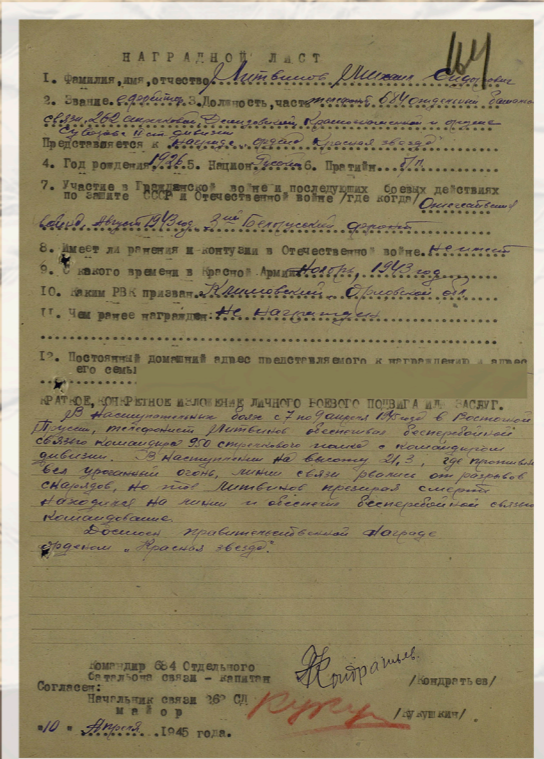 164
НАГРАДНОЙ ЛИСТ
1. Фамилия, имя, отчество Литвинов Михаил Сидорович
2. Звание. ефрейтор 3. Должность, часть телефонист 684 отдельный батальон
связи, 262 стрелковой Демидовской, Краснознаменной и ордена
Суворова II ст дивизии
Представляется к награде, орден "Красная звезда"
4. Год рождения 1926 5. Национ. Русск. 6. Пратийн. б/п
7. Участие в Гражданской войне и последующих боевых действиях
по защите СССР и Отечественной войне /где когда/ Отечествен.
август 1943 год, Белорусский фронт
8. Имеет ли ранения и контузии в Отечественной войне. не имеет
9. С какого времени в Красной Армии Ноябрь, 1943 год
10. Каким РВК призван. Орловской обл
11. Чем ранее награжден: Не награжден
12. Постоянный домашний адрес представляемого к награждению и адрес
его семьи
КРАТКОЕ, КОНКРЕТНОЕ ИЗЛОЖЕНИЕ ЛИЧНОГО БОЕВОГО ПОДВИГА ИЛИ ЗАСЛУГ.
В наступательных боях с 7 по 9 апреля 1945 года в Восточной
Пруссии, телефонист Литвинов обеспечил бесперебойной
связью командира 950 стрелкового полка с командиром
дивизии. В наступлении на высоту 21,3, где противник
вел ураганный огонь, линии связи рвались от разрывов
снарядов, но тов Литвинов презирая смерть
находился на линии и обеспечил бесперебойной связью
командование.
Достоин правительственной награде
орденом "Красная звезда".
Командир 684 Отдельного
батальона связи - капитан Кондратьев /Кондратьев/
Согласен:
Начальник связи 262 СД
майор Кукуш /Кукушкин/
"10" Апреля 1945 года.